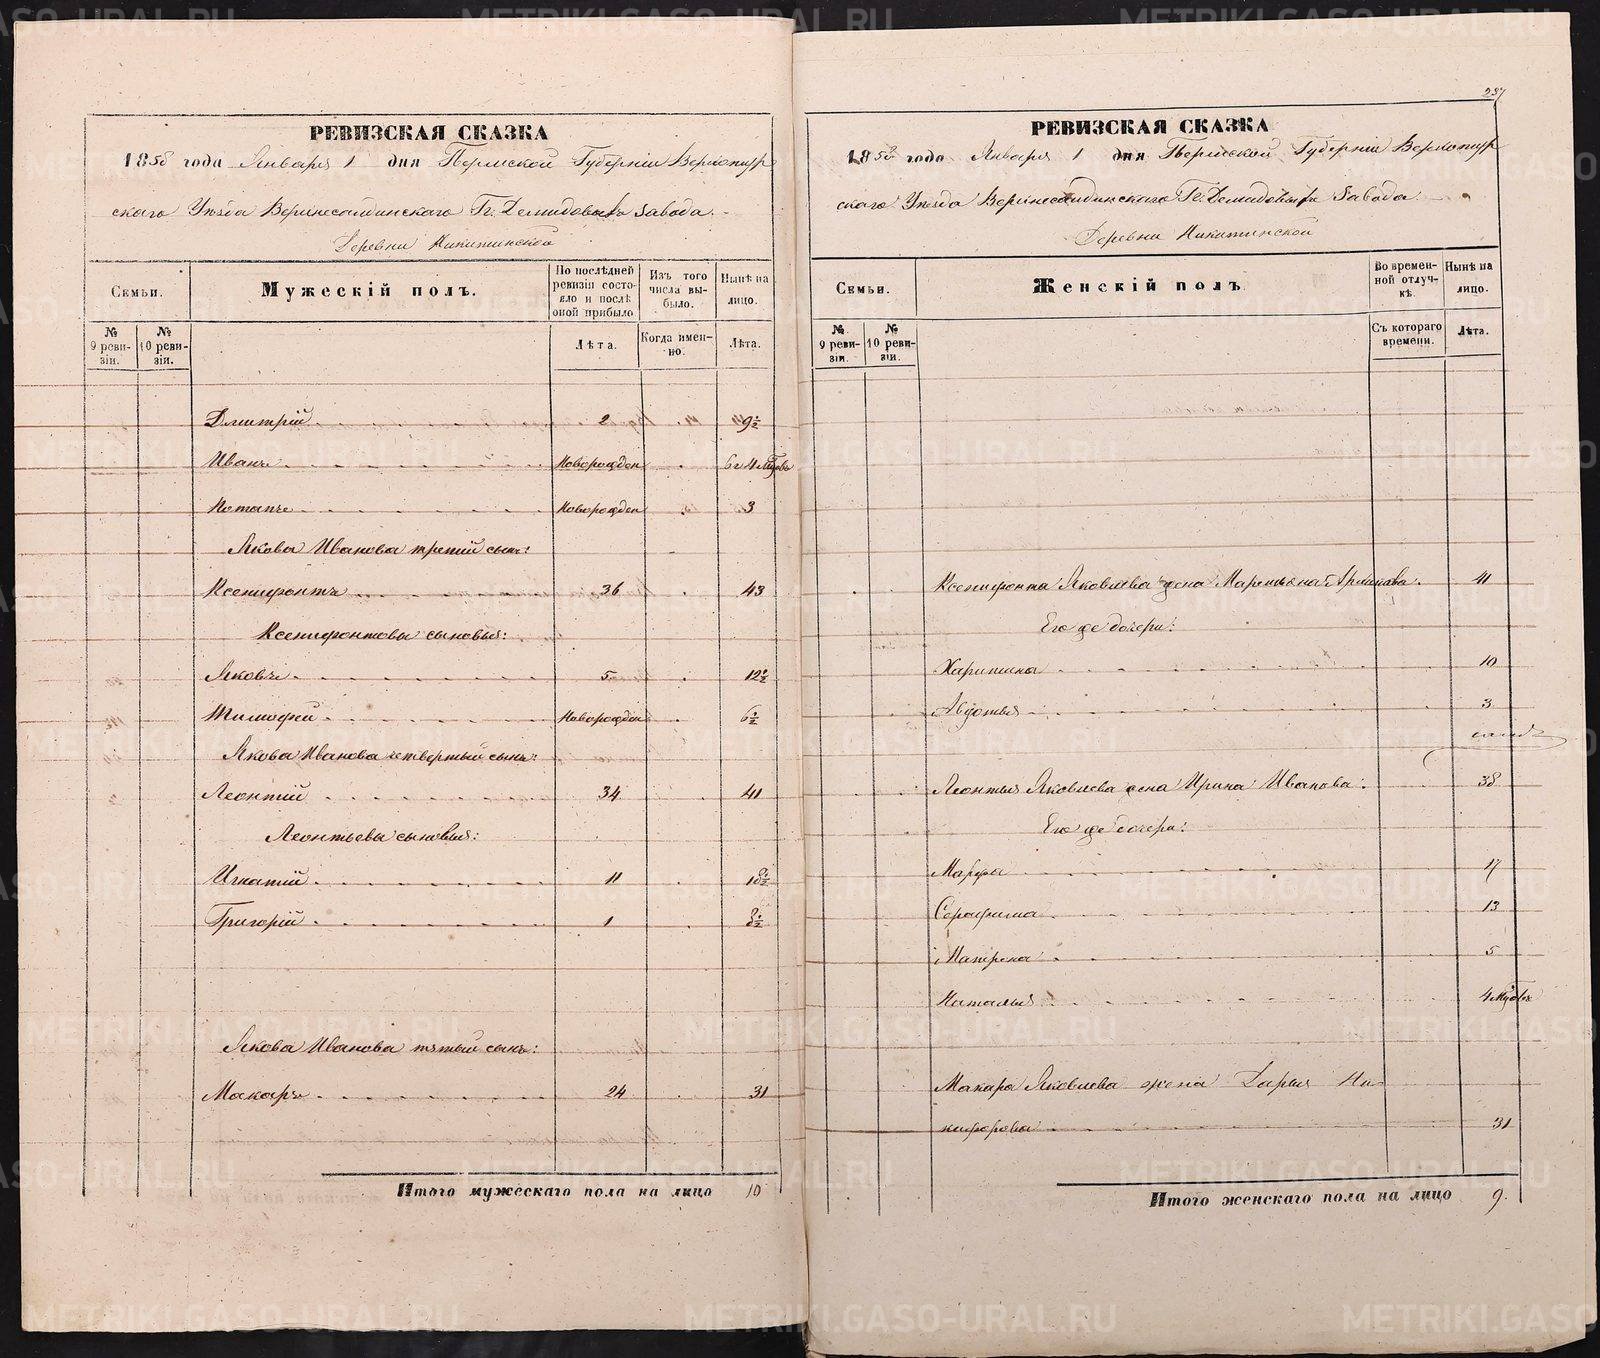 РЕВИЗСКАЯ СКАЗКА
1858 года Января 1 дня Пермской Губерніи Верхотур
скаго Уѣзда Верхнесалдинскаго Гг. Демидовыхъ завода.
Деревни Никитинской
Семьи.
Мужескій полъ.
По послѣдней ревизіи состояло и послѣ оной прибыло
Изъ того числа выбыло.
Нынѣ на лицо.
№ 9 ревизіи.
№ 10 ревизіи.
Лѣта.
Когда именно.
Лѣта.
Дмитрій 2 9½
Иванъ Новорожден 6 и 4 мѣсов
Потапъ Новорожден 3
Якова Иванова третій сынъ:
Ксенифонтъ 36 43
Ксенифонтовы сыновья:
Яковъ 5 12½
Тимофей Новорожден 6½
Якова Иванова четвертый сынъ:
Леонтій 34 41
Леонтьевы сыновья:
Игнатій 11 18½
Григорій 1 8½
Якова Иванова пятый сынъ:
Макаръ 24 31
Итого мужескаго пола на лицо 10
237
РЕВИЗСКАЯ СКАЗКА
1858 года Января 1 дня Пермской Губерніи Верхотур
скаго Уѣзда Верхнесалдинскаго Гг. Демидовыхъ Завода
Деревни Никитинской
Семьи.
Женскій полъ
Во временной отлучкѣ.
Нынѣ на лицо.
№ 9 ревизіи.
№ 10 ревизіи.
Съ котораго времени.
Лѣта.
Ксенифонта Яковлева жена Маремьяна 41
Его же дочери:
Харитина 10
Авдотья 3
Леонтья Яковлева жена Ирина Иванова: 38
Его же дочери:
Марфа 17
Серафима 13
Матрена 5
Наталья 4 мѣсов
Макара Яковлева жена Дарья Ни
кифорова 31
Итого женскаго пола на лицо 9.
METRIKI.GASO-URAL.RU